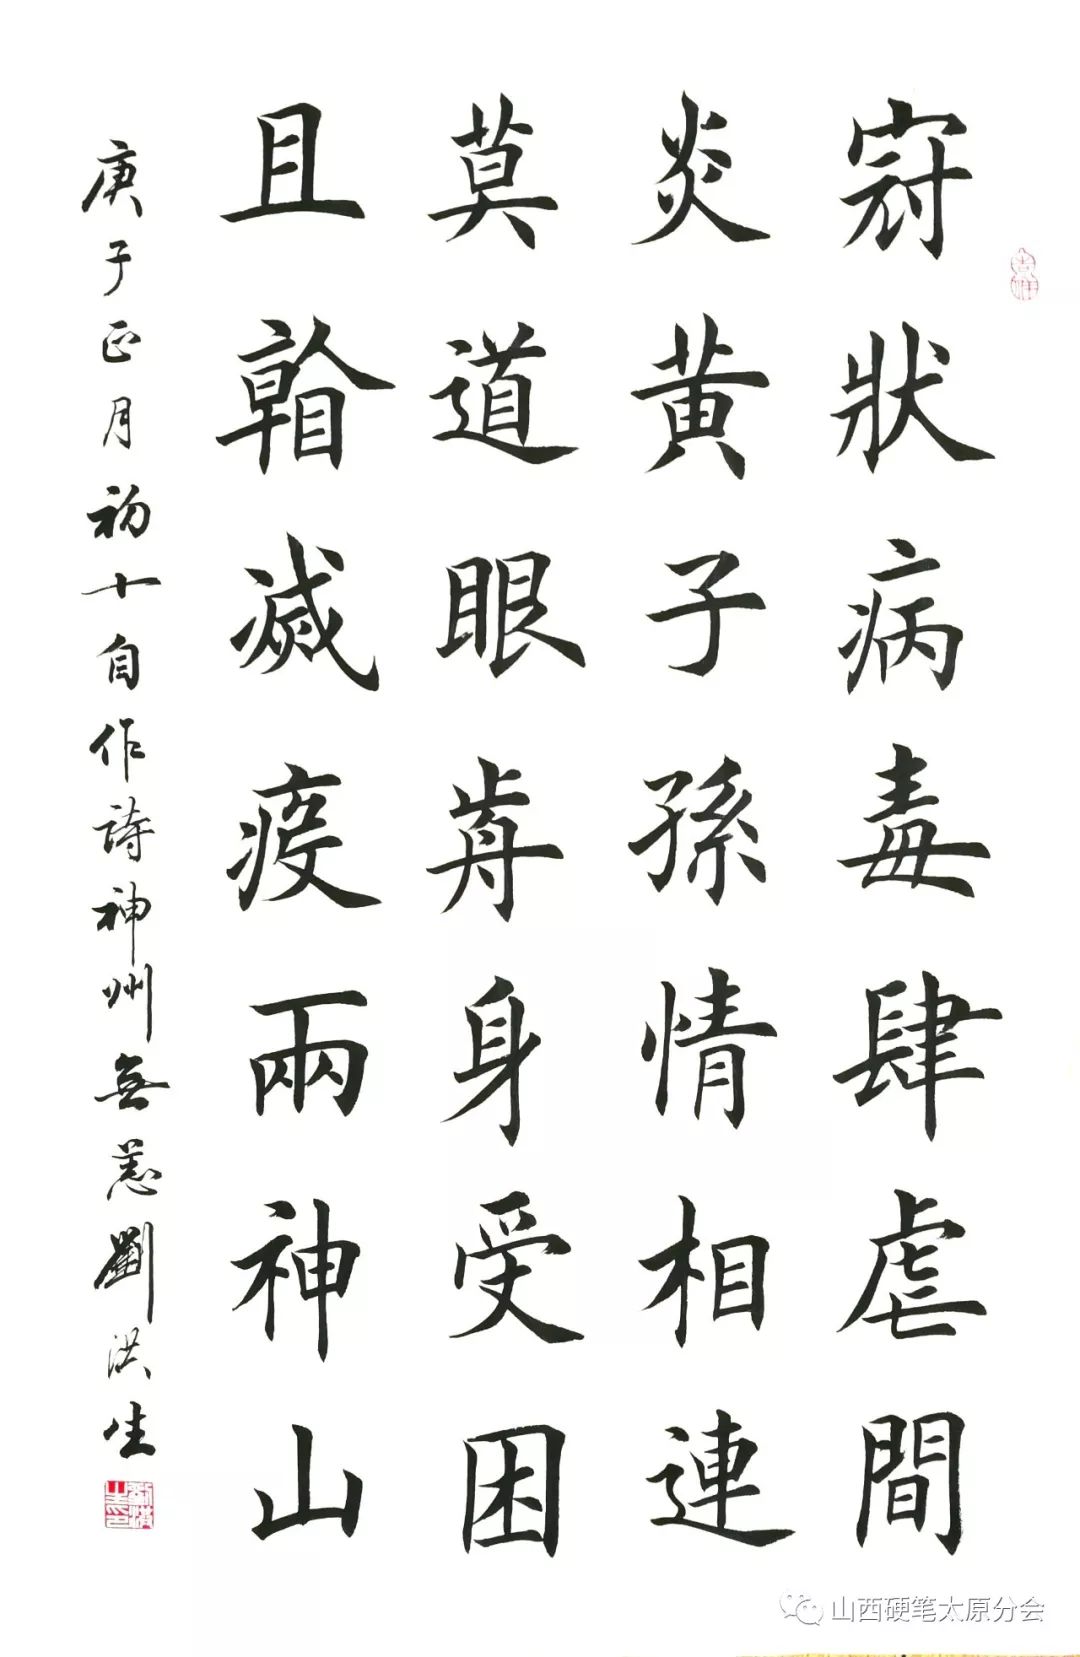 冠狀病毒肆虐間
炎黃子孫情相連
莫道眼歬身受困
且看滅疫兩神山
庚子正月初十自作詩神州無恙劉洪生
山西硬笔太原分会